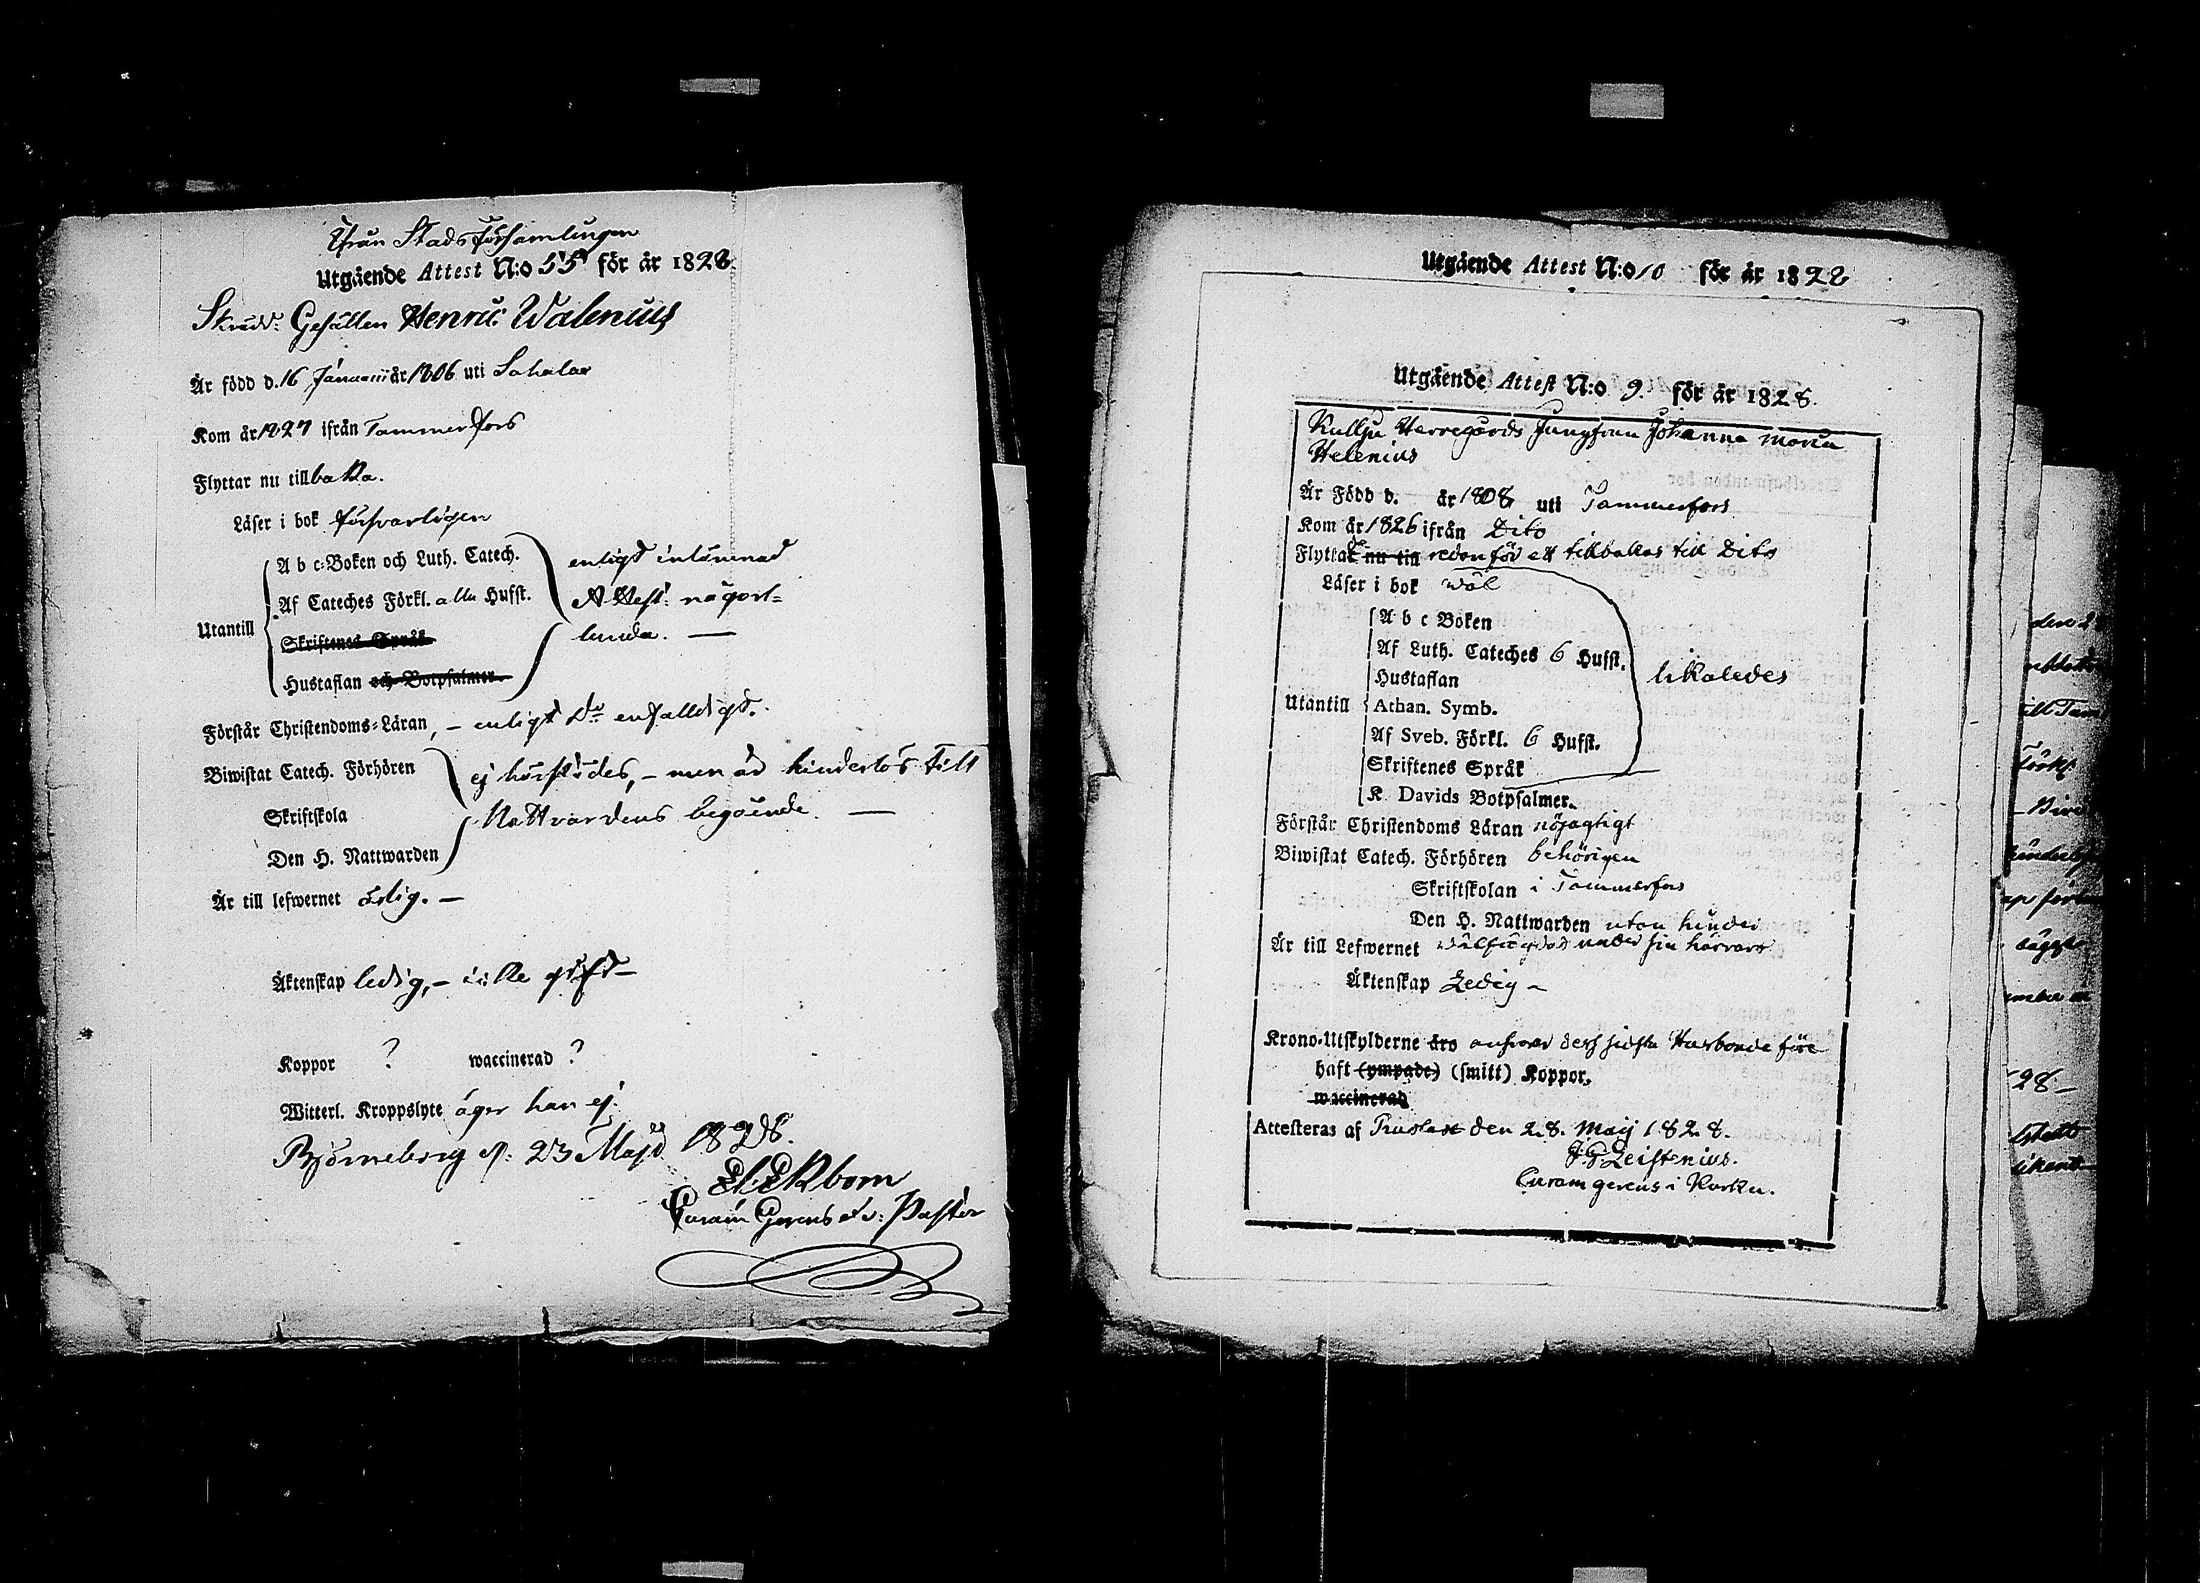 Ifrån Stads församlingen
Utgående Attest N:o 55 för år 1828.
Skrädd: Gesällen Henric Walenius
Är född d. 16 Januarii år 1806 uti Sahalax
Kom år 1827 ifrån Tammerfors
Flyttar nu tillbaka.
Läser i bok försvarligen
A b c-Boken och Luth. Catech.
Af Cateches Förkl. alla Hufst.
Utantill
Skriftenes Språk
Hustaflan och Botpsalmer.
enligt inlemnad
Attest: någor-
lunda. —
Förstår Christendoms-Läran, – enligt Do enfalldigt.
Biwistat Catech. Förhören
Skriftskola
Den H. Nattwarden
ej härstädes, – men är hinderlös till
Nattvardens begående. —
Är till lefwernet ärlig. —
Äktenskap ledig, – icke gift –
Koppor ? waccinerad ?
Witterl. Kroppslyte äger han ej.
Björneborg d. 23 Maji 1828.
El. Ekbom
Curam Gerens af v: Pastor
Utgående Attest N:o 10 för år 1828
Utgående Attest N:o 9. för år 1828.
Kulju Herregårds Jungfrun Johanna Maria
Helenius
Är Född d. år 1808 uti Tammerfors
Kom år 1826 ifrån Dito
Flyttat nu till redan för ett tillbakas till Dito
Läser i bok wäl
A b c Boken
Af Luth. Cateches 6 Hufst.
Hustaflan
Utantill Athan. Symb.
Af Sveb. Förkl. 6 Hufst.
Skriftenes Språk
K. Davids Botpsalmer.
likaledes
Förstår Christendoms Läran nöjagtigt
Biwistat Catech. Förhören behörigen
Skriftskolan i Tammerfors
Den H. Nattwarden utan hinder
Är till Lefwernet wälfrägdad under sin härvaro
Äktenskap Ledig –
Krono-Utskylderne äro ansvarar dess sidsta Husbonde före
haft (ympade) (smitt) Koppor.
waccinerad
Attesteras af Truslax den 28. Maij 1828.
F. G. Leistenius.
Curam gerens i Karku.